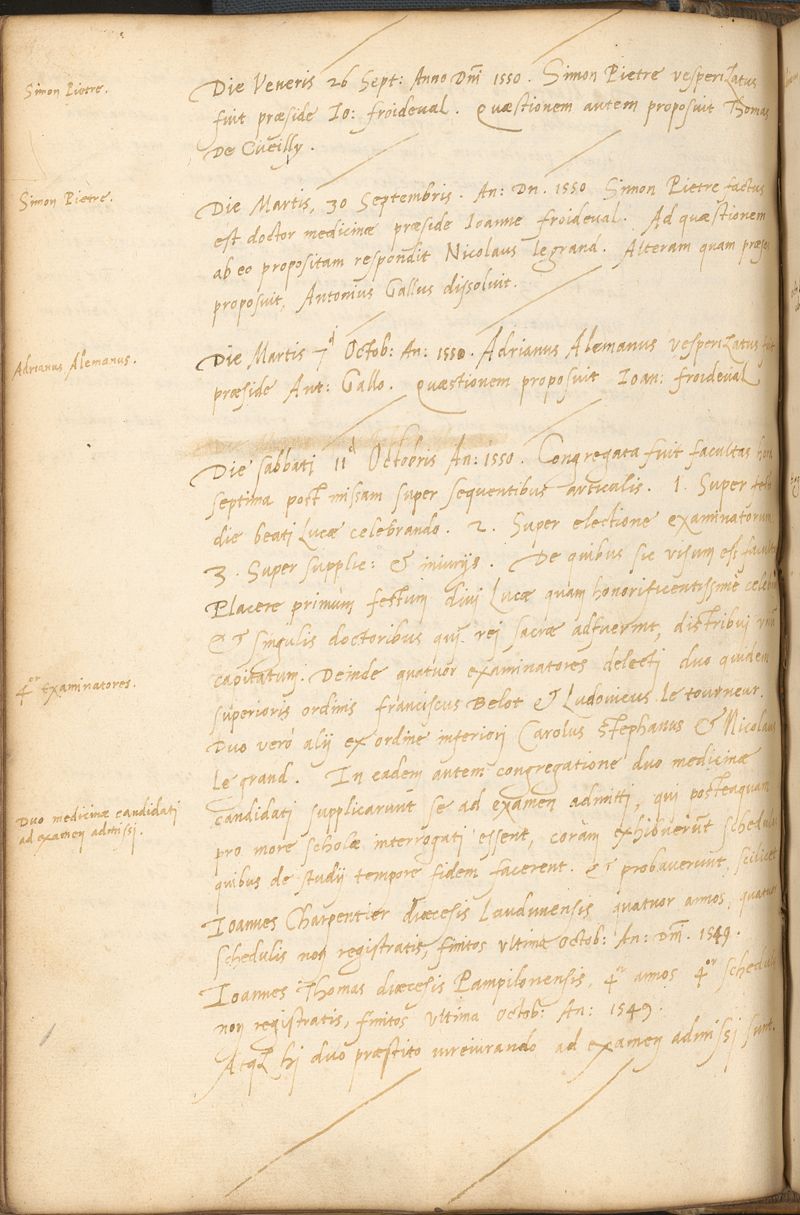 Simon Pietre.
Die Veneris 26 Sept: Anno Dm̄ 1550. Simon Pietre vesperizatus
fuit præside Io: froideval. Quæstionem autem proposuit Thomas
De Cueilly.
Simon Pietre.
Die Martis, 30 Septembris. An: Dn. 1550 Simon Pietre factus
est doctor medicinæ præside Ioanne froideval. Ad quæstionem
ab eo propositam respondit Nicolaus legrand. Alteram quam præses
proposuit, Antonius Gallus dissoluit.
Adrianus Alemanus.
Die Martis 7a Octob: An: 1550. Adrianus Alemanus vesperizatus
præside Ant: Gallo. Quæstionem proposuit Ioan: froideval
Die sabbati 11a Octobris An: 1550. Congregata fuit facultas hora
septima post missam super sequentibus articulis. 1. Super festo
die beati Lucæ celebrando. 2. Super electione examinatorum
3. Super supplic: & iniurijs. De quibus sic visum est facult
Placere primum festum divi Lucæ quam honorificentissimè celeb
& singulis doctoribus qui rei sacræ adfuerint, distribui
capitatum. Deinde quatuor examinatores delecti duo quidem
4or Examinatores.
superioris ordinis franciscus Belot & Ludovicus le tourneur.
Duo verò alij ex ordine inferiori Carolus Stephanus & Nicolaus
le grand. In eadem autem congregatione duo medicinæ
Duo medicinæ candidati
ad examen admissi.
candidati supplicarunt se ad examen admitti, qui posteaquam
pro more scholæ interrogati essent, coràm exhibuerūt schedul
quibus de studij tempore fidem facerent. & probaverunt, scilicet
Ioannes Charpentier diœcesis Laudunensis quatuor annos, quatuor
schedulis non registratis, finitos ultima Octob: An: Dm̄. 1549.
Ioannes Thomas diœcesis Pampilonensis, 4r annos 4or schedul
non registratis, finitos ultima Octob: An: 1549.
Atq; hi duo præstito iureiurando ad examen admissi sunt.